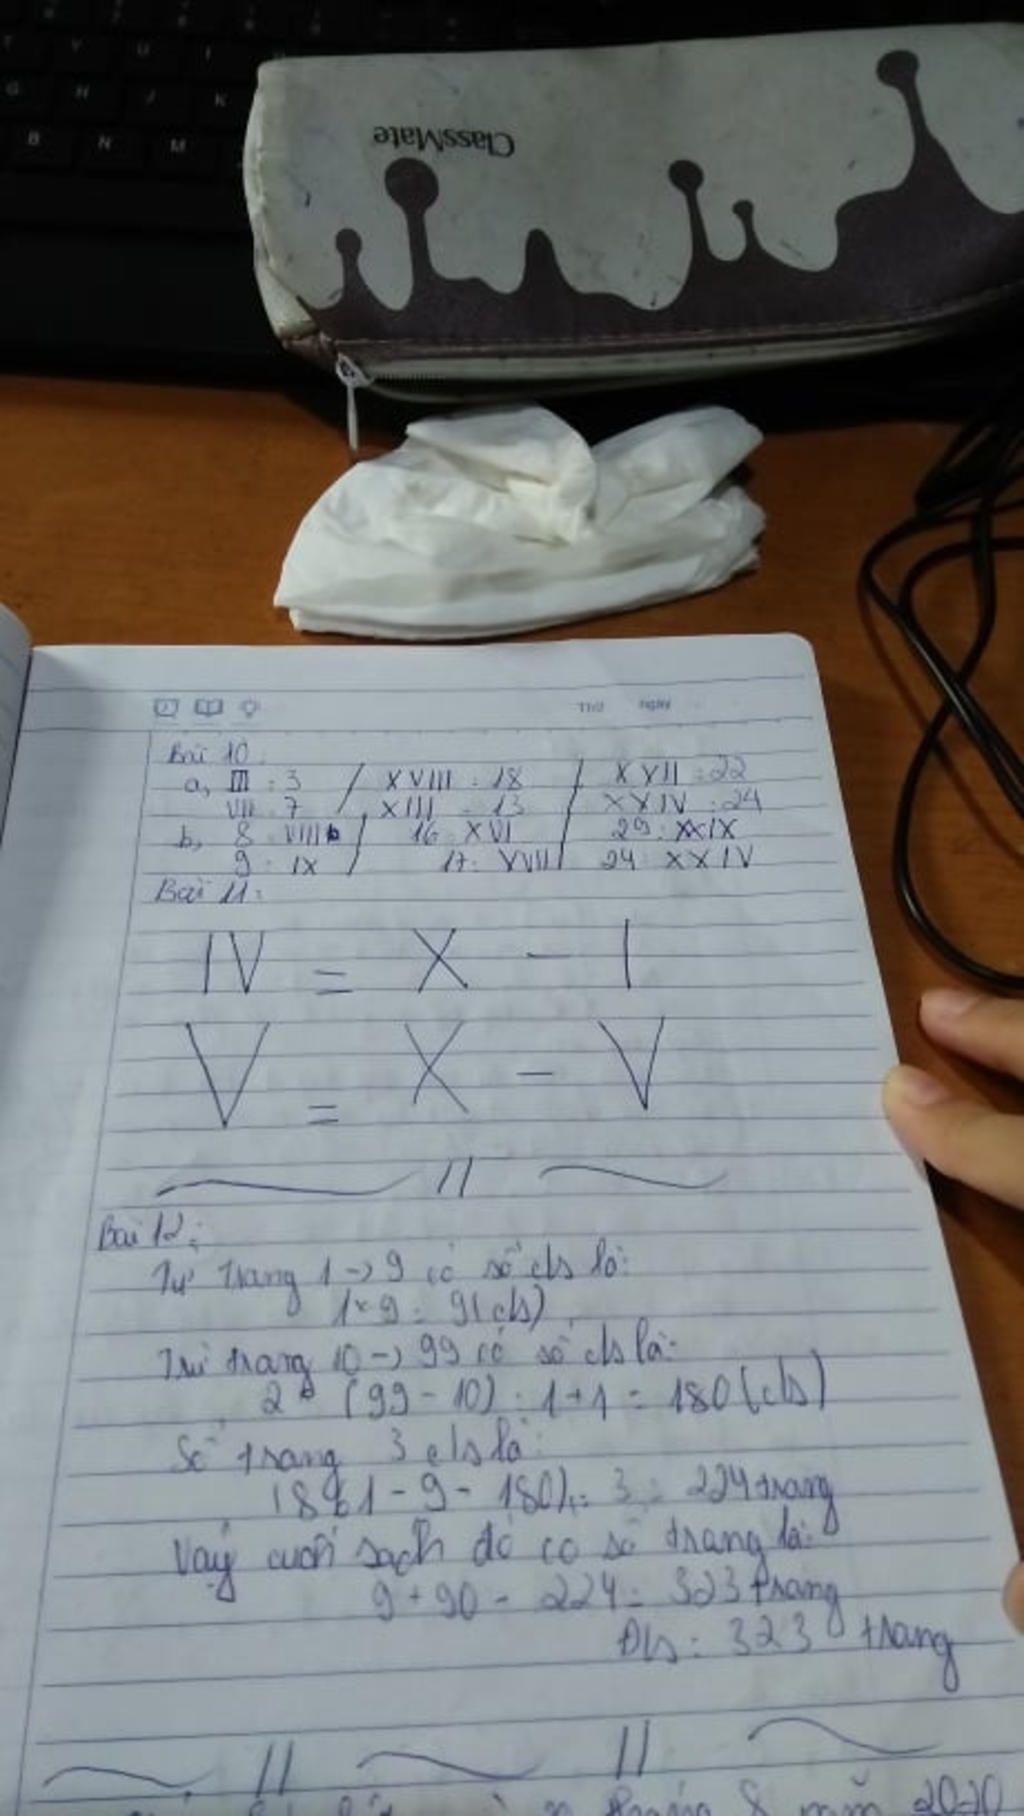 T Y U I
G H J K
B N M
ClassMate
Thứ ngày
Bài 10:
a, III : 3 / XVIII : 18 / XVII : 22
VII : 7 XIII : 13 XXIV : 24
b, 8 : VIII / 16 : XVI / 29 : XXIX
9 : IX / 17 : XVII / 24 : XXIV
Bài 11:
IV = X - I
V = X - V
Bài 12:
Từ trang 1 -> 9 có số cls là:
1 x 9 = 9 (cls)
Từ trang 10 -> 99 có số cls là:
2 (99 - 10) : 1 + 1 = 180 (cls)
Số trang 3 cls là:
(861 - 9 - 180) : 3 = 224 trang
Vậy cuốn sách đó có số trang là:
9 + 90 - 224 = 323 trang
Đls : 323 trang
tháng 8 năm 2020